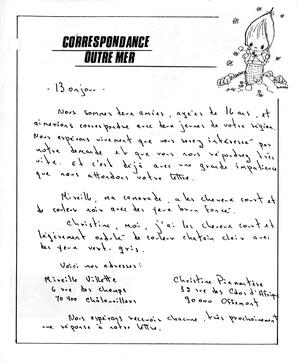 CORRESPONDANCE
OUTRE MER
- Bonjour -
Nous sommes deux amies, agées de 16 ans, et
aimerions correspondre avec deux jeunes de votre légion.
Nous espérons vivement que vous serez intéressés par
notre demande, et que vous nous répondrez très
vite. Et c'est déjà avec une grande impatience
que nous attendons votre lettre.
Mireille, ma camarade, a les cheveux court et
de couleur noir avec des yeux brun foncé.
Christine, moi, j'ai les cheveux court et
légèrement ondulé de couleur chatain clair avec
des yeux vert-gris.
Voici nos adresses:
Mireille Villette
6 rue des champs
70 400 Châlonvillars
Christine
32 rue des Cdos d'Afrique
90 000 Offemont
Nous espérons recevoir chacune, très prochainement
une réponse à notre lettre.